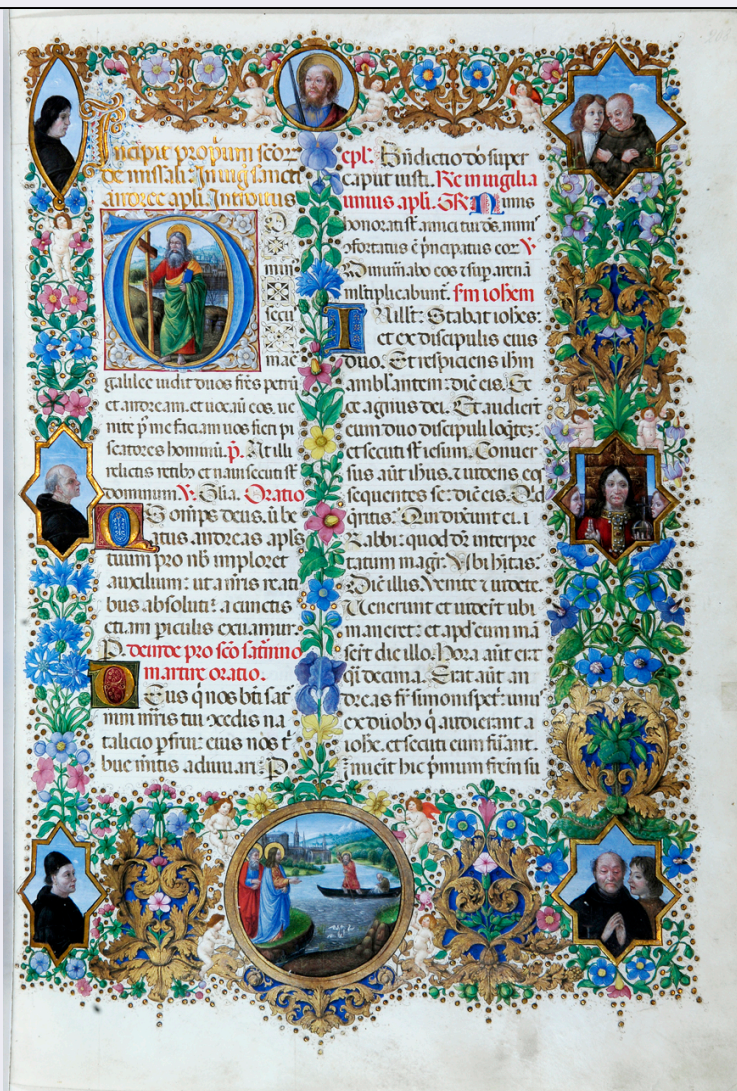 Incipit propium scōꝝ
de missali. In uig. sancti
andree apli. Introitus
D
min
secu
mare
galilee uidit duos fr̄es petrū
et andream. et uocauit eos. ue
nite p̄ me faciam uos fieri pi
scatores hominū. p̄. At illi
relictis retibꝰ et naui secuti st̄
dominum. V. Glia. Oratio
Q S omp̄s deus. ū be
atus andreas apl̄s
tuum pro nb̄ imploret
auxilium: ut a nr̄is reati
bus absoluti: a cunctis
etiam piculis exuamur.
P. deinde pro scō saturnino
martire oratio.
D Eus q̄ nos bt̄i sat
nini m̄ris tui ɔcedis na
talicio ꝑfrui: eius nos t̄
bue m̄itis adiuuari. P
epl'. Bn̄dictio dō super
caput iusti. Re in uigilia
unius apli. GR. Nimis
honorati st̄ amici tui ds. nimꝭ
ɔfortatus ē p̄ncipatus eoꝝ V
Dinumābo eos ⁊ sup arenā
multiplicabunt. sm̄ iohem
I N illo t̄. Stabat iohēs:
et ex discipulis eius
duo. Et respiciens ih̄m
ambulantem: dic̄ eis. Ec
ce agnus dei. Et audiert̄
eum duo discipuli loq̄tez:
et secuti st̄ iesum. Conuer
sus aūt ih̄us. ⁊ uidens eos
sequentes se: dic̄ eis. Q'd
q̄ritis: Qui dixerunt ei.
Rabbi: quod dr̄ interpre
tatum magr̄. Vbi h̄itas:
Dic̄ illis. Venite ⁊ uidete
Uenerunt et uider̄t ubi
maneret: et apd' eum mā
ser̄t die illo. Hora aūt erat
q̄si decima. Erat aūt an
dreas fr̄ simonis pet̄: unꝰ
ex duobꝰ q̄ audierant a
iohe. et secuti eum fu̅ant.
Inuēit hic p̄mum fr̄em su